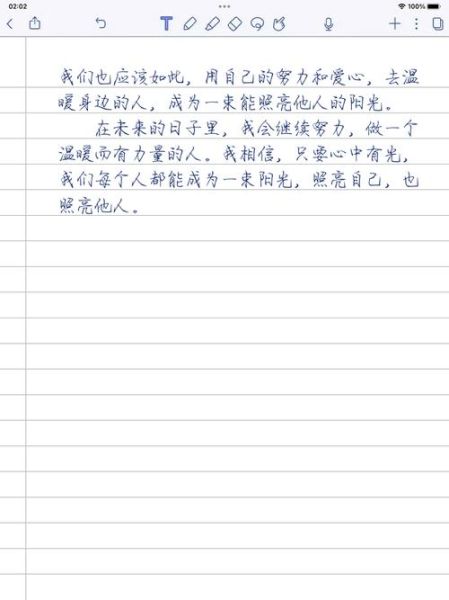 02:02
100%
T
我们也应该如此，用自己的努力和爱心，去温
暖身边的人，成为一束能照亮他人的阳光。
在未来的日子里，我会继续努力，做一个
温暖而有力量的人。我相信，只要心中有光，
我们每个人都能成为一束阳光，照亮自己，也
照亮他人。